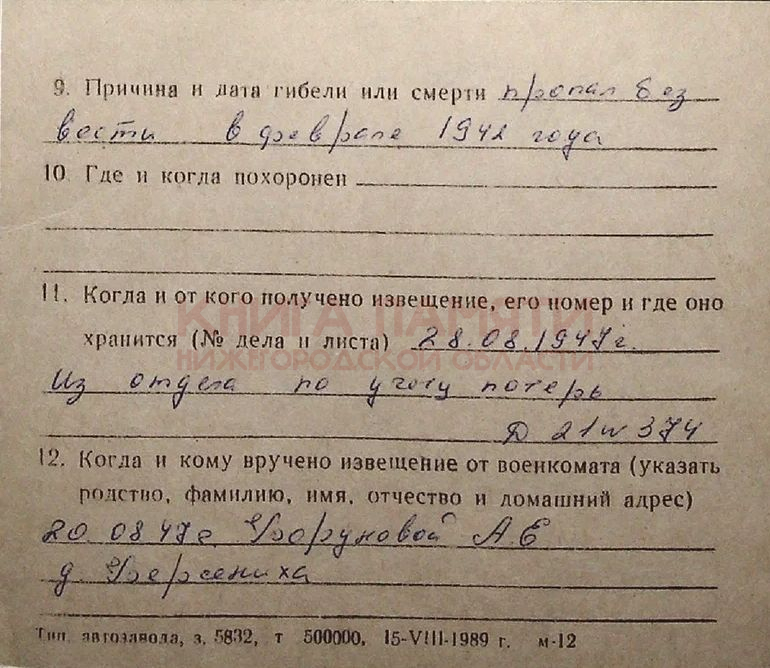 9. Причина и дата гибели или смерти пропал без
вести в феврале 1942 года
10. Где и когда похоронен
11. Когда и от кого получено извещение, его номер и где оно
КНИГА ПАМЯТИ
хранится (№ дела и листа) 28.08.1947г.
НИЖЕГОРОДСКОЙ ОБЛАСТИ
Из отдела по учету потерь
Д 21 н 374
12. Когда и кому вручено извещение от военкомата (указать
родство, фамилию, имя, отчество и домашний адрес)
20.08 47г. А.Е
д.
Тип. автозавода, з. 5832, т 500000, 15-VIII-1989 г. м-12